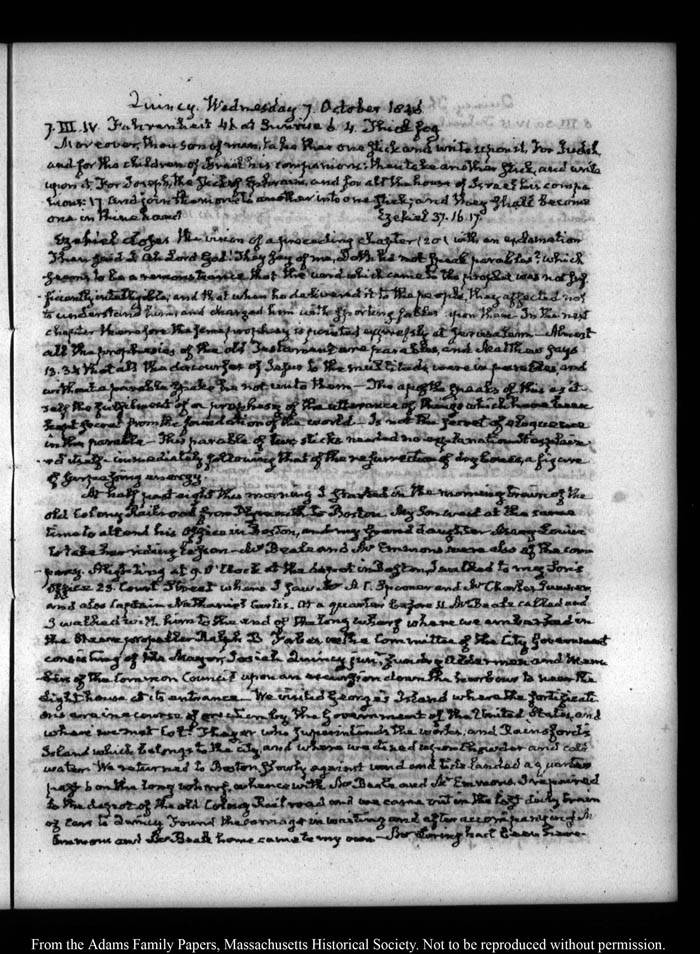 Quincy. Wednesday 7 October 1846
7. III. IV. Fahrenheit 41 at Sunrise 6 4. Thick fog
Moreover, thou son of man, take thee one stick and write upon it, For Judah,
and for the children of Israel his companions: then take another stick, and write
upon it, For Joseph, the stick of Ephraim, and for all the house of Israel his compa
nions: 17 and join them one to another into one stick; and they shall become
one in thine hand Ezekiel 37. 16. 17.
Ezekiel closes the vision of a preceding chapter (20) with an exclamation
Then said I Ah Lord God! They say of me, Doth he not speak parables? which
seems to be a remonstrance that the word which came to the prophet was not suf
ficiently intelligible, and that when he delivered it to the people, they affected not
to understand him, and charged him with sporting fables upon them. In the next
chapter therefore the same prophesy is pointed expressly at Jerusalem — Almost
all the prophesies of the old Testament are parables, and Matthew says
13. 34 that all the discourses of Jesus to the multitude were in parables, and
without a parable spake he not unto them — The apostle speaks of this as it
self the fulfilment of a prophesy of the utterance of things which have been
kept secret from the foundation of the world — Is not the secret of eloquence
in this parable — This parable of two sticks needed no explanation
itself — immediately following that of the resurrection of dry bones, a figure
of surpassing energy.
At half past eight this morning I started in the morning train of the
old Colony Railroad from Plymouth to Boston. My Son went at the same
time to attend his Office in Boston, and my Grand daughter Mary Louisa
to take her riding lesson — Mr Beale and Mr Emmons were also of the com
pany. Alighting at 9 O'Clock at the depot in Boston, I walked to my Son's
Office 23. Court Street where I saw Mr A. C. Spooner and Mr Charles Sumner
and also Captain Nathaniel. At a quarter before 11. Mr Beale called and
I walked with him to the end of the long wharf where we embarked in
the Steam propeller Ralph B Forbes with a Committee of the City Government
consisting of the Mayor, Josiah Quincy junr, sundry Aldermen and Mem
bers of the Common Council upon an excursion down the harbour to near the
Light house at its entrance — We visited George's Island where the fortificati
ons are in a course of erection by the Government of the United States, and
where we met Coll. Thayer who superintends the works, and Rainsford's
Island which belongs to the city, and where we dined upon Chowder and cold
water. We returned to Boston slowly against wind and tide landed a quarter
past 6 on the long wharf, whence with Mr Beale and Mr Emmons I repaired
to the depot of the old Colony Railroad and we came out in the last daily train
of cars to Quincy. Found the carriage in waiting and after accompanying Mr
Emmons and Mr Beale home came to my own — Mr Loring had been here.
From the Adams Family Papers, Massachusetts Historical Society. Not to be reproduced without permission.